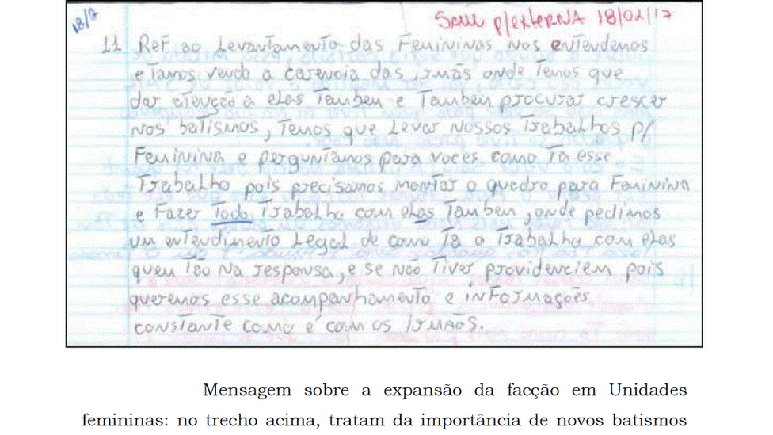 18/7
Saiu p/externa 18/01/17
11 Ref ao Levantamento das Femininas nos entendemos
e tamos vendo a carencia das irmãs onde temos que
dar atenção a elas Tambem e Tambem procurar crescer
nos batismos, Temos que Levar nossos Trabalhos p/
Feminina e perguntamos para voces como Ta esse
Trabalho pois precisamos montar o quadro para Feminina
e Fazer Todo Trabalho com elas Tambem, onde pedimos
um entendimento Legal de como Ta o Trabalho com elas
quem Tão na responsa, e se não Tiver providenciem pois
queremos esse acompanhamento e informações
constante como é com os Irmãos.
Mensagem sobre a expansão da facção em Unidades
femininas: no trecho acima, tratam da importância de novos batismos